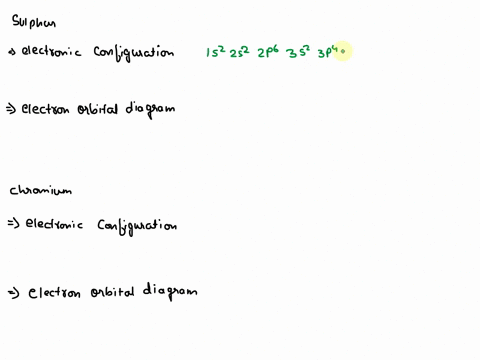 Sulphur
⇒ electronic configuration 1s² 2s² 2p⁶ 3s² 3p⁴
⇒ electron orbital diagram
chromium
⇒ electronic configuration
⇒ electron orbital diagram